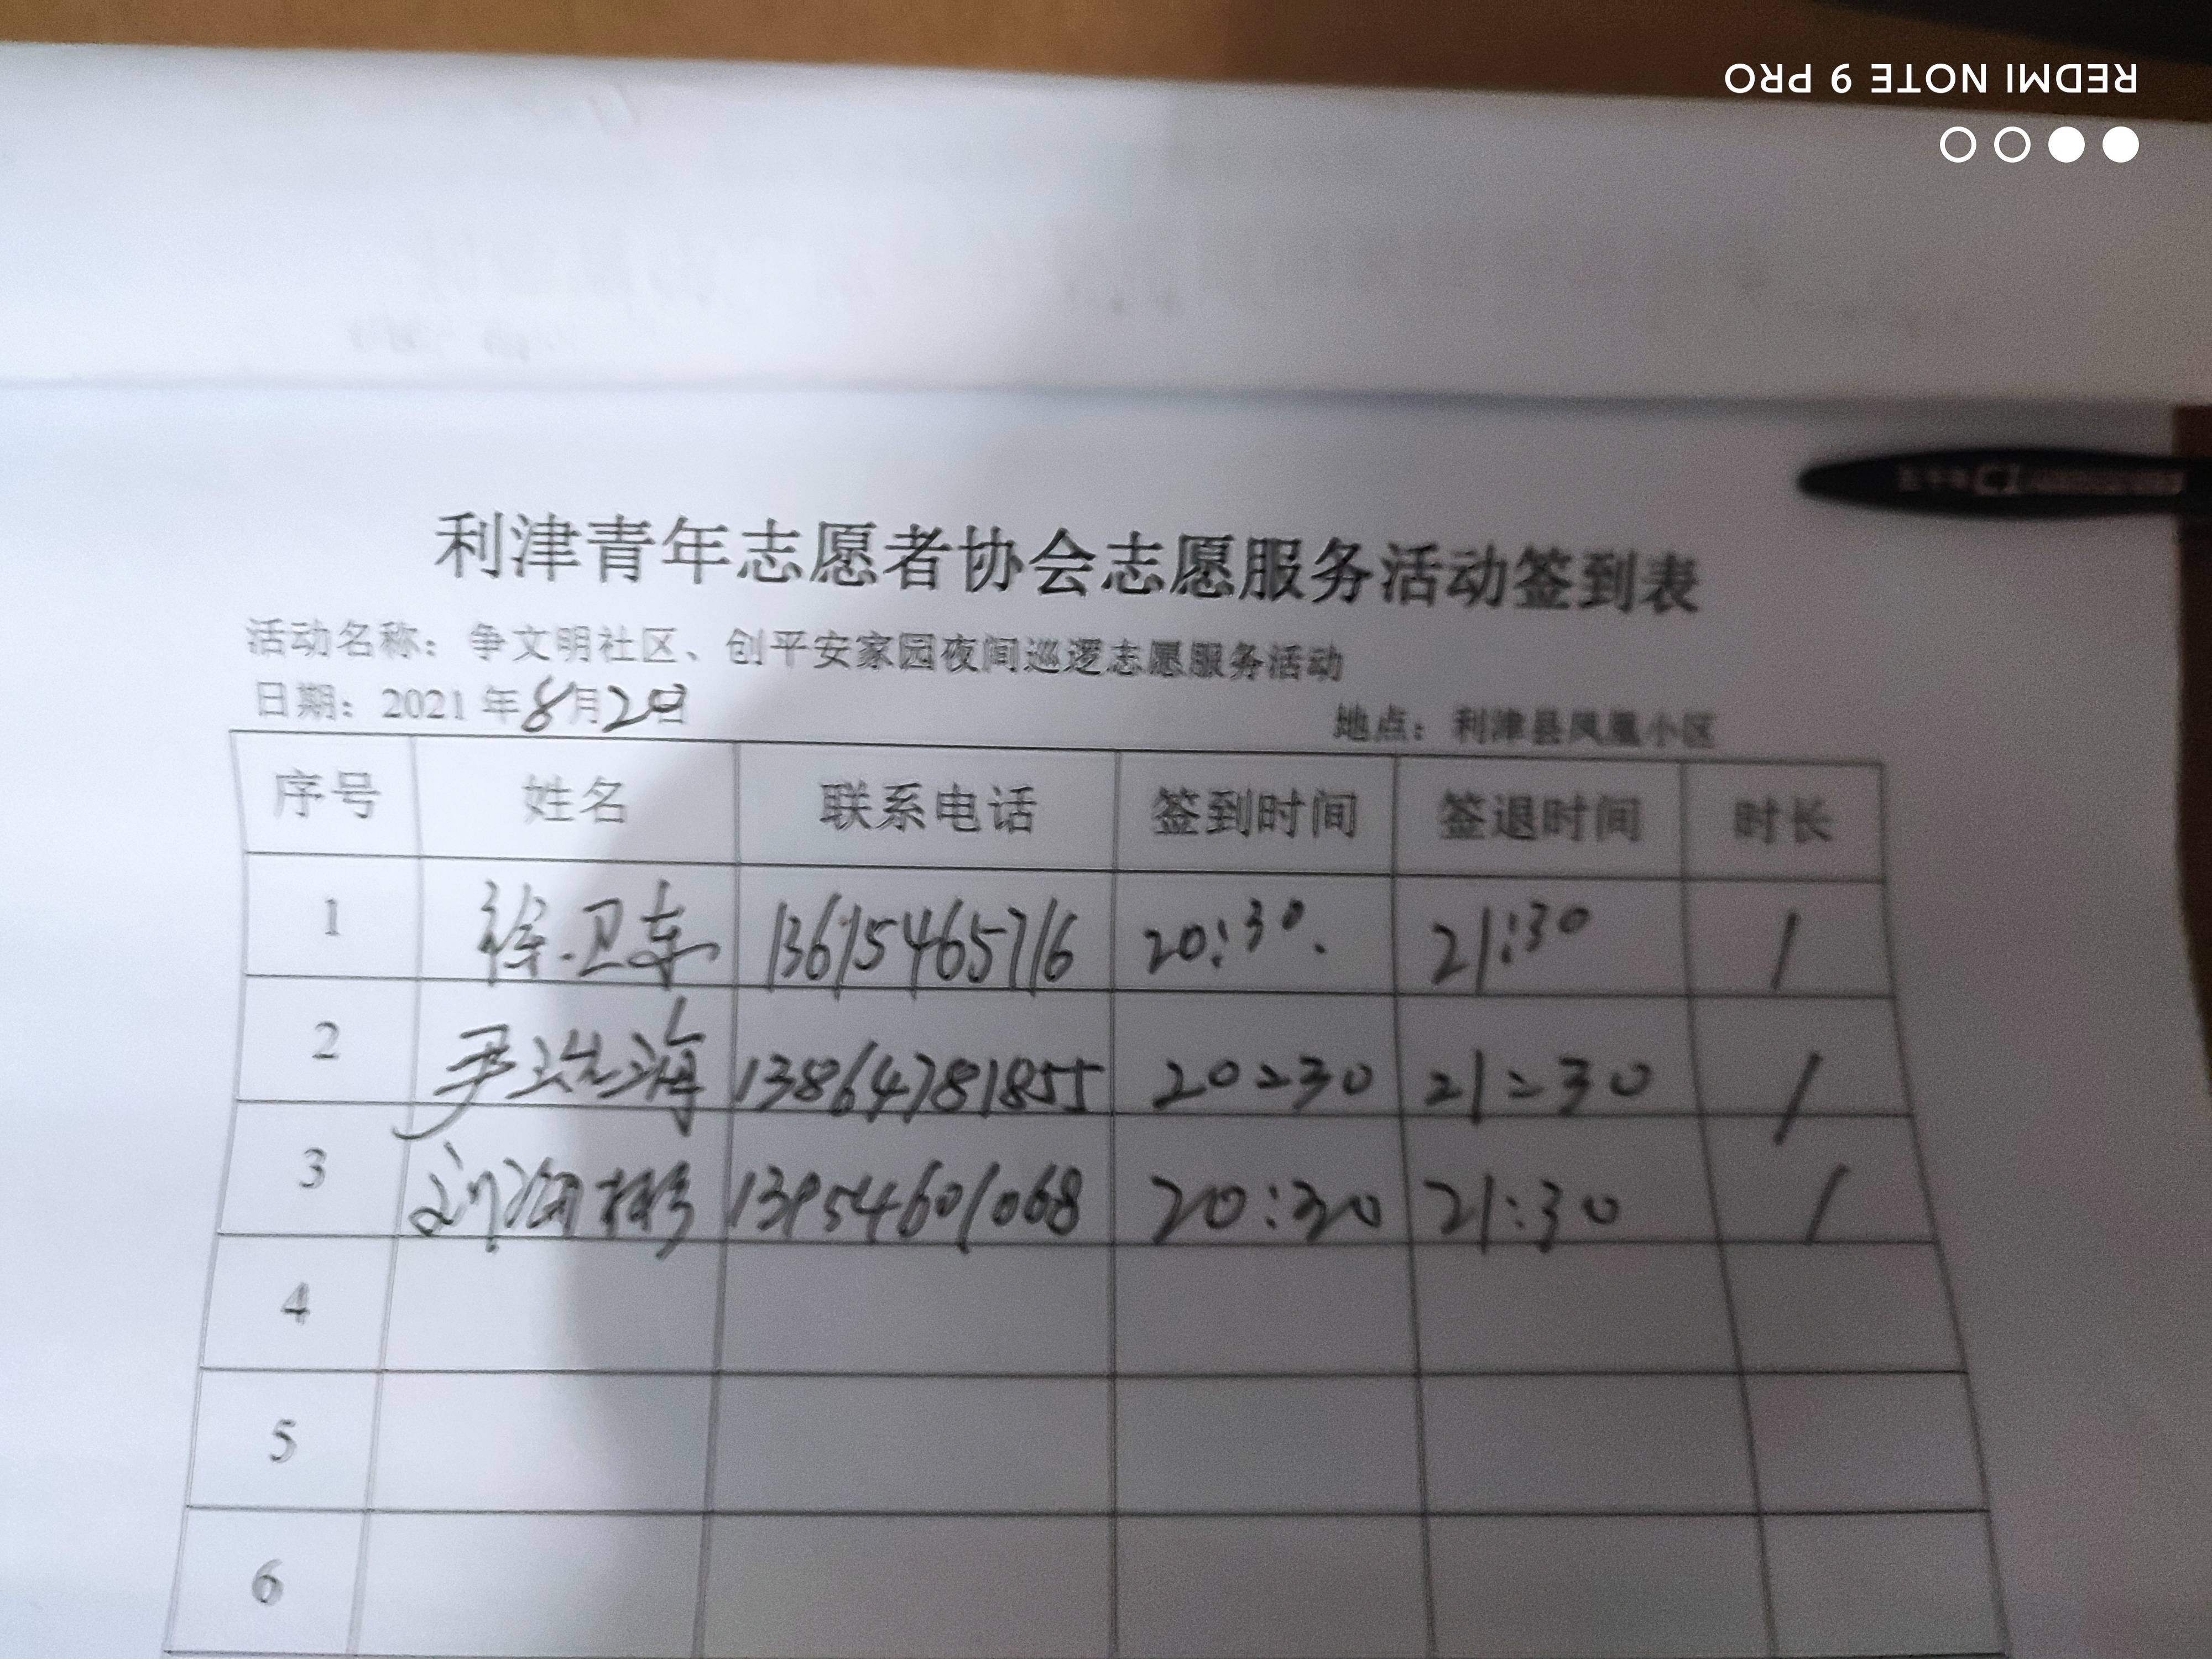 REDMI NOTE 9 PRO
利津青年志愿者协会志愿服务活动签到表
活动名称：争文明社区、创平安家园夜间巡逻志愿服务活动
日期：2021年8月20日
地点：利津县凤凰小区
序号 姓名 联系电话 签到时间 签退时间 时长
1 徐卫东 13615465716 20:30. 21:30 1
2 尹 海 13864781855 20:30 21:30 1
3 刘 13954601068 20:30 21:30 1
4
5
6